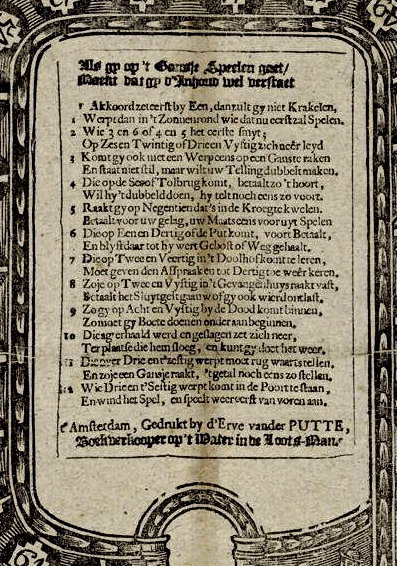 Als gy op 't Gansje Speelen gaet /
Maekt dat gy d'Inhoud wel verstaet
Akkoordzeteerst by Een, dan zult gy niet Krakelen,
1 Werpt dan in 't Zonnenrond wie dat nu eerst zal Spelen.
2 Wie 3 en 6 of 4 en 5 het eerste smyt;
Op Zes en Twintig of Drie en Vyftig zich neêr leyd
3 Komt gy ook met een Werp eens op een Ganste raken
En staat niet stil, maar wilt uw Telling dubbelt maken.
4 Die op de Ses of Tolbrug komt, betaalt zo 't hoort,
Wil hy 't dubbeld doen, hy telt noch eens zo voort.
5 Raakt gy op Negentien dat 's in de Kroeg te kwelen.
Betaalt voor uw gelag, uw Maats eens voor uyt Spelen
6 Die op Een en Dertig of de Put komt, voort Betaalt,
En blyft daar tot hy wert Gebost of Weg gehaalt.
7 Die op Twee en Veertig in 't Doolhof komt te leren,
Moet geven den Afspraak en tot Dertig toe weêr keren.
8 Zo je op Twee en Vyftig in 't Gevangenhuys raakt vast,
Betaalt het Sluytgelt gaauw of gy ook wierd ontlast.
9 Zo gy op Acht en Vyftig by de Dood komt binnen,
Zo moet gy Boete doen en onder aan beginnen.
10 Die agterhaald werd en geslagen zet zich neer,
Ter plaatse die hem sloeg, en kunt gy doet het weer.
11 Die over Drie en t'zestig werpt moet rug waarts tellen,
En zo je een Gansje raakt, 't getal noch eens zo stellen.
12 Wie Drie en t'Sestig werpt komt in de Poort te staan,
En wind het Spel, en speelt weer eerst van voren aan.
t'Amsterdam, Gedrukt by d'Erve vander PUTTE,
Boekverkooper op 't Water in de Loots-Man.
61